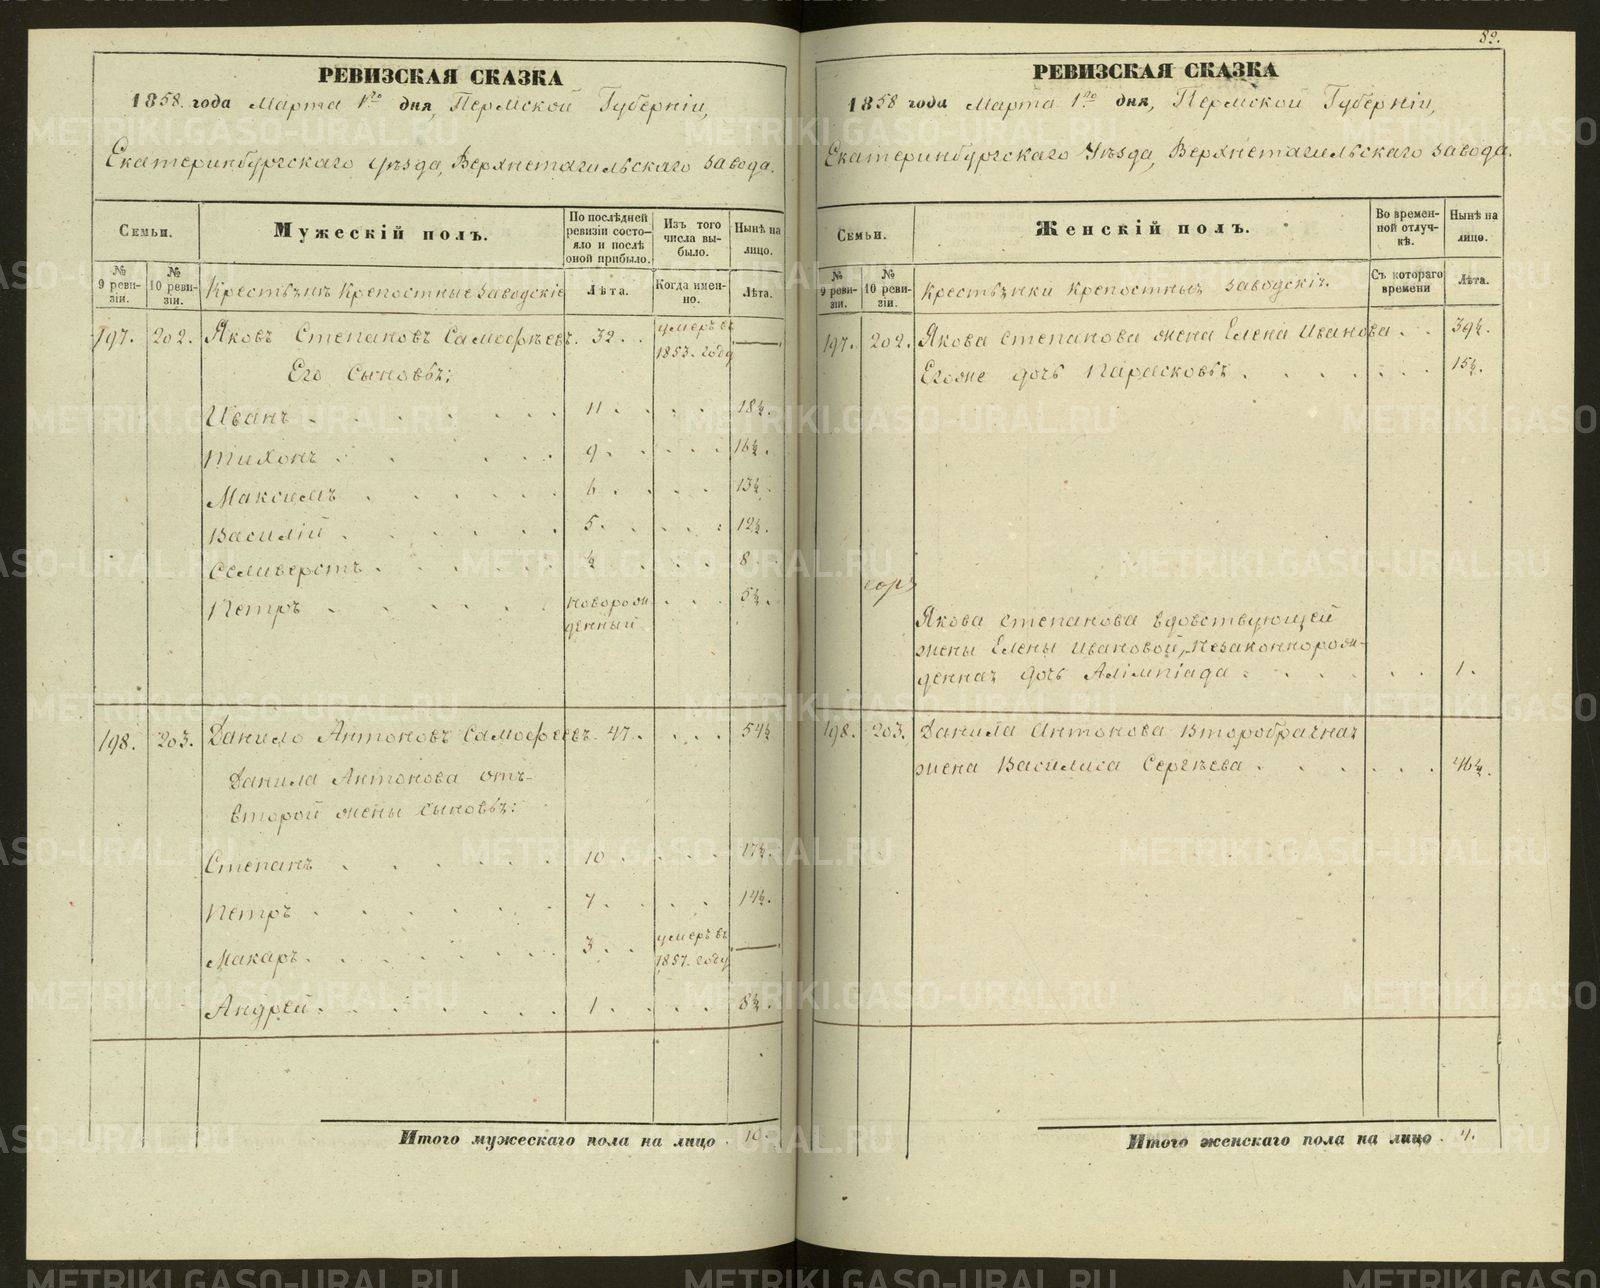 РЕВИЗСКАЯ СКАЗКА
1858. года Марта 1го дня, Пермской Губерніи,
Екатеринбургскаго уѣзда, Верхнетагильскаго завода.
Семьи.
Мужескій полъ.
По послѣдней ревизіи состояло и послѣ оной прибыло.
Изъ того числа выбыло.
Нынѣ на лицо.
№ 9 ревизіи.
№ 10 ревизіи.
Крестьянѣ Крепостные Заводскіе
Лѣта.
Когда именно.
Лѣта.
197. 202. Яковъ Степановъ Самофѣевъ. 32. умеръ въ 1853. году —
Его Сыновья:
Иванъ 11. 18½.
Тихонъ 9. 16½.
Максимъ 6. 13½.
Василій 5. 12½.
Селиверстъ ½ 8
Петръ новорожденный 5½.
198. 203. Данило Антоновъ Самофеевъ. 47. 54½
Данила Антонова отъ
второй жены сыновья:
Степанъ 10 17½.
Петръ 7. 14½.
Макаръ. 3. умеръ въ 1857. году —
Андрей. 1. 8½.
Итого мужескаго пола на лицо 10.
82.
РЕВИЗСКАЯ СКАЗКА
1858 года Марта 1го дня, Пермской Губерніи,
Екатеринбургскаго Уѣзда, Верхнетагильскаго завода.
Семьи.
Женскій полъ.
Во временной отлучкѣ.
Нынѣ на лицо.
№ 9 ревизіи.
№ 10 ревизіи.
Крестьянки крепостныя заводскія.
Съ котораго времени
Лѣта.
197. 202. Якова Степанова жена Елена Иванова 39½.
Егоже дочь Парасковья 15½.
Якова Степанова вдовствующей
жены Елены Ивановой, незаконнорож-
денная дочь Алімпіада 1.
198. 203. Данила Антонова Второбрачная
жена Василиса Сергѣева 46½.
Итого женскаго пола на лицо 4.
METRIKI.GASO-URAL.RU